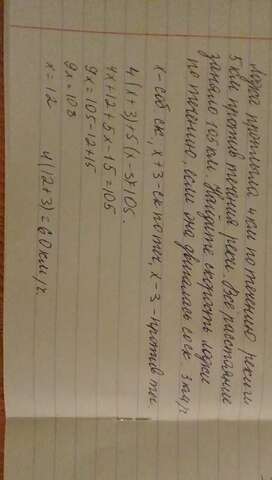 Лодка проплыла 4 км по течению реки и
5 км против течения реки. Все расстояние
заняло 105 км. Найдите скорость лодки
по течению, если она двигалась со ск 3 км/ч
х - соб ск., х+3 - ск по теч, х-3 - против теч
4(х+3)+5(х-3)=105.
4х+12+5х-15=105
9х=105-12+15
9х=108
х=12 4(12+3)=60 км/ч.